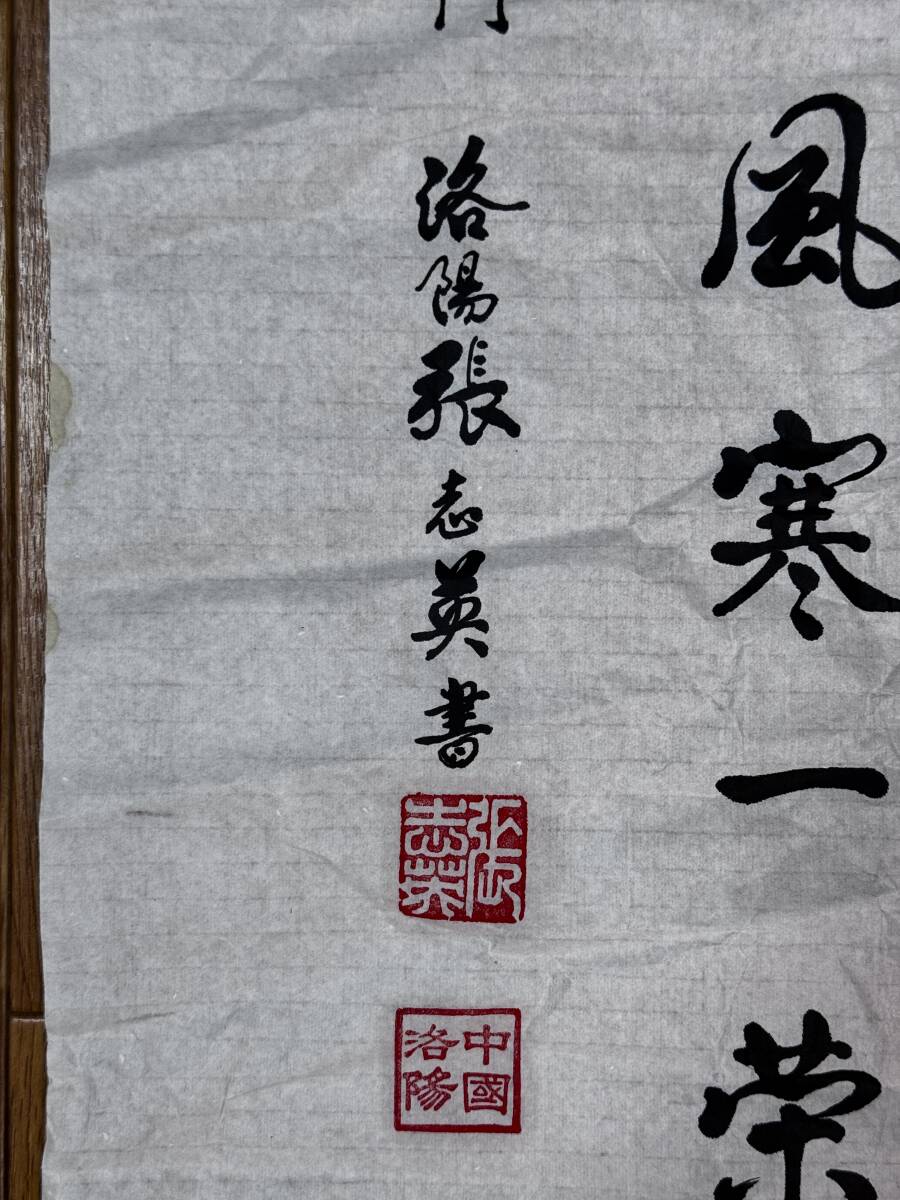 風寒一榮
洛陽張志英書
張志英
中國洛陽